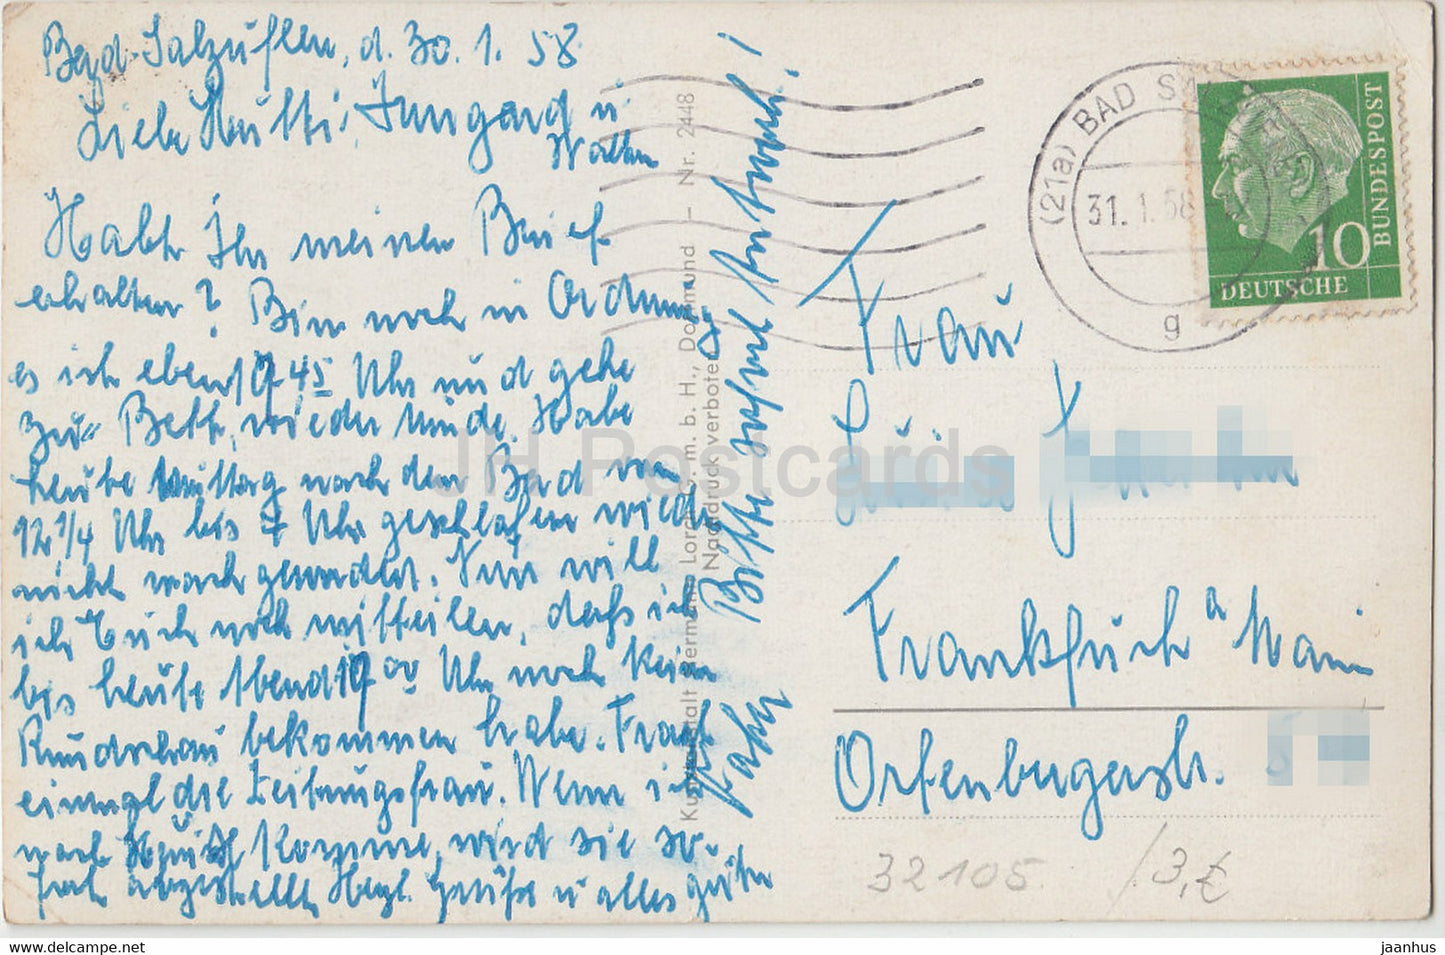 Bad-Salzuflen, d. 30.1.58
Liebe Mutti, Irmgard u.
Walter
Habt Ihr meinen Brief
erhalten? Bin noch in Ordnung
es ist eben 19 45 Uhr und gehe
zu Bett, wieder müde. Habe
heute Mittag nach dem Bad von
12 1/4 Uhr bis 4 Uhr geschlafen wieder
nicht wach geworden. Nun will
ich Euch noch mitteilen, daß ich
bis heute Abend 19 00 Uhr noch keine
Rundschau bekommen habe. Fragt
einmal die Zeitungsfrau. Wenn ich
nach Haus komme, wird sie so-
fort abgestellt. Herzl. Grüße u alles gute
Bitte sofort Antwort!
Kunstanstalt Hermann Lorch G. m. b. H., Dortmund – Nr. 2448
Nachdruck verboten
(21a) BAD SALZUFLEN
31.1.58
g
DEUTSCHE BUNDESPOST
10
Frau
Frankfurt a Main
Offenbacherstr.
32105
13,€
JH Postcards
jaanhus